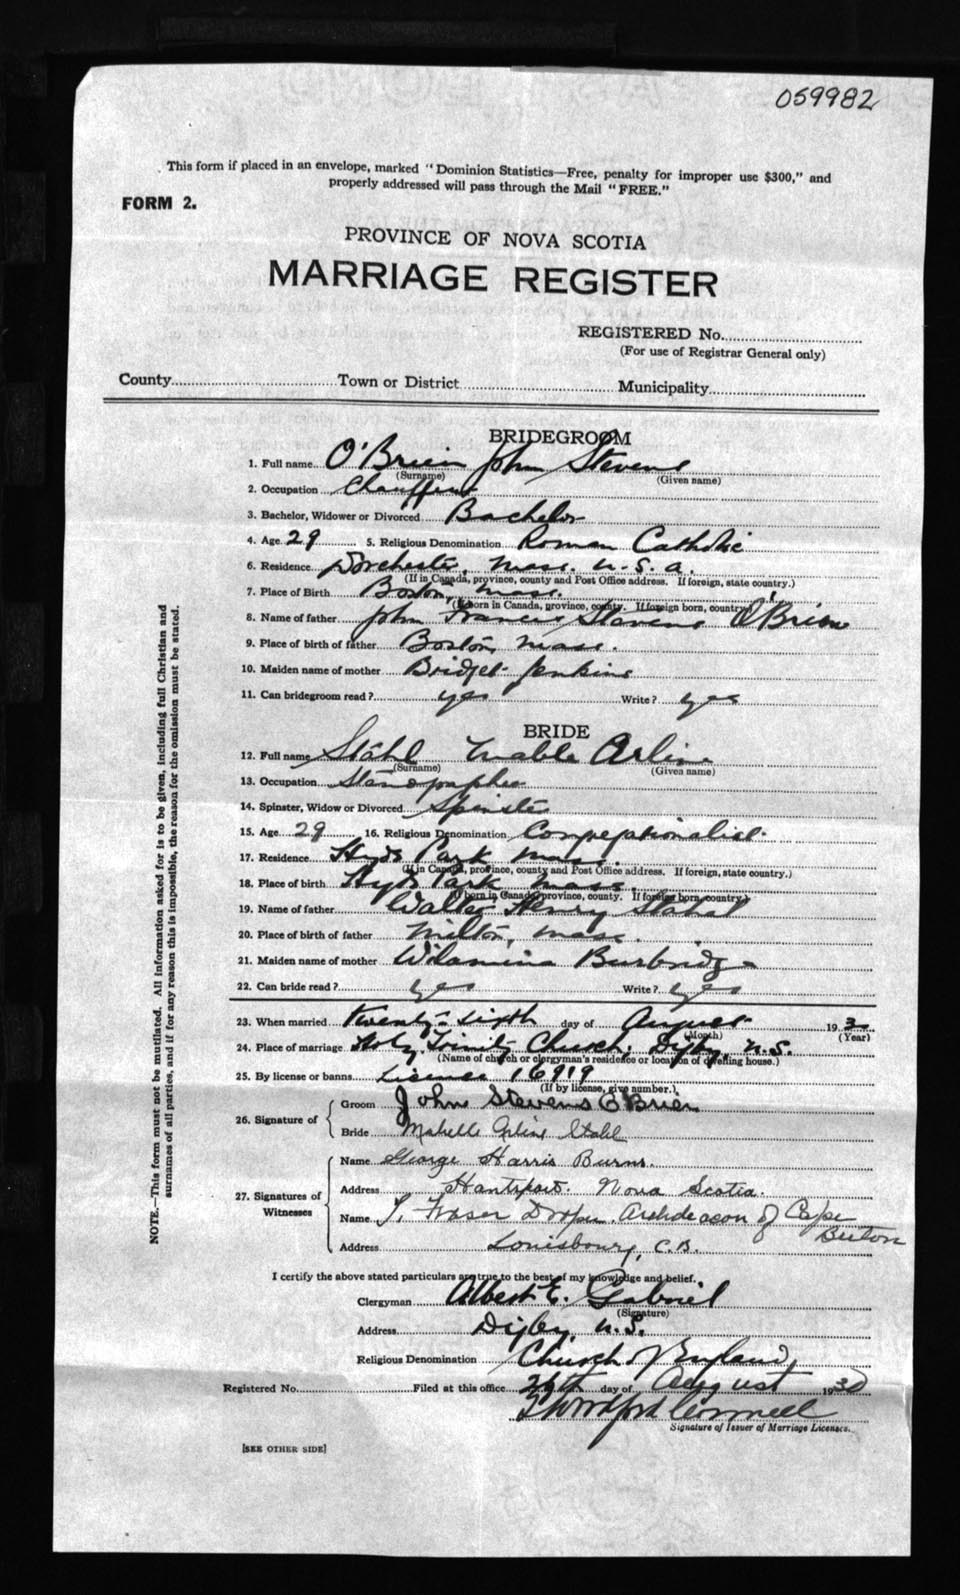 059982
This form if placed in an envelope, marked "Dominion Statistics—Free, penalty for improper use $300," and
properly addressed will pass through the Mail "FREE."
FORM 2.
PROVINCE OF NOVA SCOTIA
MARRIAGE REGISTER
REGISTERED No.
(For use of Registrar General only)
County Town or District Municipality
BRIDEGROOM
1. Full name O'Brien John Stevens
(Surname) (Given name)
2. Occupation Chauffeur
3. Bachelor, Widower or Divorced Bachelor
4. Age 29 5. Religious Denomination Roman Catholic
6. Residence Dorchester, Mass. U.S.A.
(If in Canada, province, county and Post Office address. If foreign, state country.)
7. Place of Birth Boston, Mass.
(If born in Canada, province, county. If foreign born, country)
8. Name of father John Francis Stevens O'Brien
9. Place of birth of father Boston, Mass.
10. Maiden name of mother Bridget Jenkins
11. Can bridegroom read? yes Write? yes
BRIDE
12. Full name Stahl Mable Arline
(Surname) (Given name)
13. Occupation Stenographer
14. Spinster, Widow or Divorced Spinster
15. Age 29 16. Religious Denomination Congregationalist.
17. Residence Hyde Park Mass.
(If in Canada, province, county and Post Office address. If foreign, state country.)
18. Place of birth Hyde Park Mass.
(If born in Canada, province, county. If foreign born, country)
19. Name of father Walter Henry Stahl
20. Place of birth of father Milton, Mass.
21. Maiden name of mother Wilamina Burbridge
22. Can bride read? yes Write? yes
23. When married twenty-sixth day of August 1930
(Month) (Year)
24. Place of marriage Holy Trinity Church, Digby, N.S.
(Name of church or clergyman's residence or location of dwelling house.)
25. By license or banns Licence 16919
(If by license, give number.)
26. Signature of
Groom John Stevens O'Brien
Bride Mabelle Arline Stahl
27. Signatures of Witnesses
Name George Harris Burns.
Address Hantsport. Nova Scotia.
Name T. Fraser Draper. Archdeacon of Cape
Breton
Address Louisbourg, C.B.
I certify the above stated particulars are true to the best of my knowledge and belief.
Clergyman Albert E. Gabriel
(Signature)
Address Digby, N.S.
Religious Denomination Church of England,
Registered No. Filed at this office 26th day of August 1930
Cornwell
Signature of Issuer of Marriage Licenses.
[SEE OTHER SIDE]
NOTE.—This form must not be mutilated. All information asked for is to be given, including full Christian and
surnames of all parties, and if for any reason this is impossible, the reason for the omission must be stated.